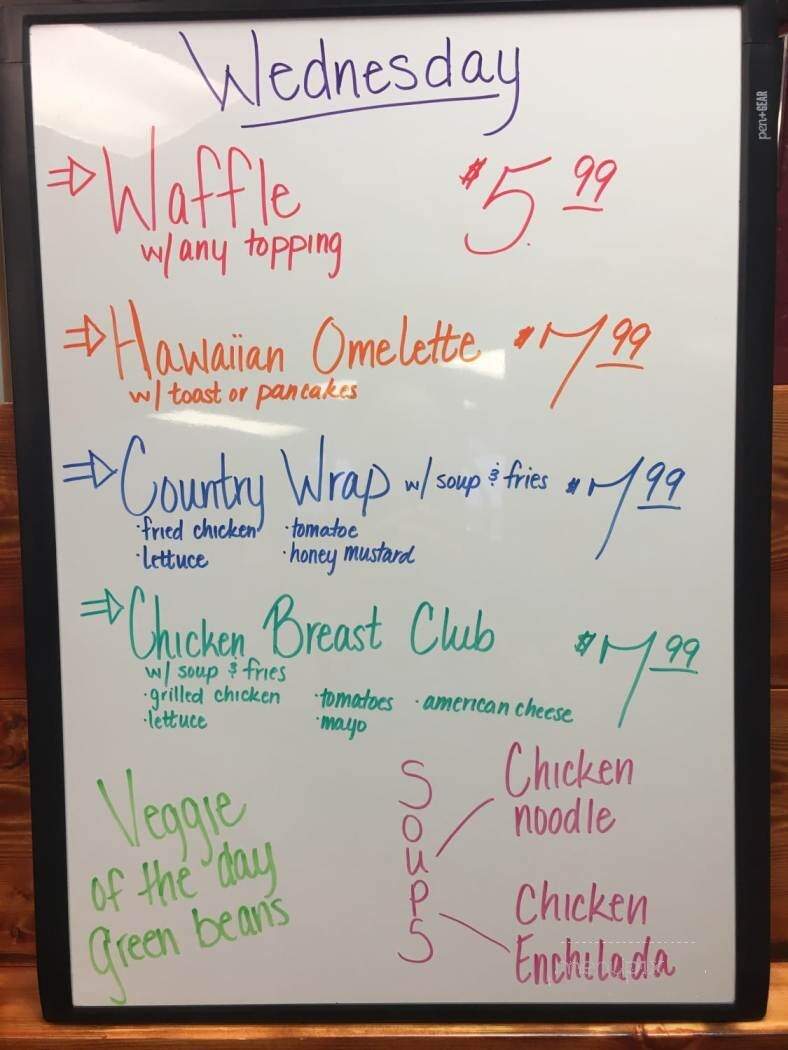 Wednesday
pen+GEAR
⇒ Waffle $5.99
w/ any topping
⇒ Hawaiian Omelette $7.99
w/ toast or pancakes
⇒ Country Wrap w/ soup & fries $7.99
·fried chicken ·tomatoe
·lettuce ·honey mustard
⇒ Chicken Breast Club $7.99
w/ soup & fries
·grilled chicken ·tomatoes ·american cheese
·lettuce ·mayo
Veggie
of the day
green beans
Soups
Chicken
noodle
Chicken
Enchilada
menupix